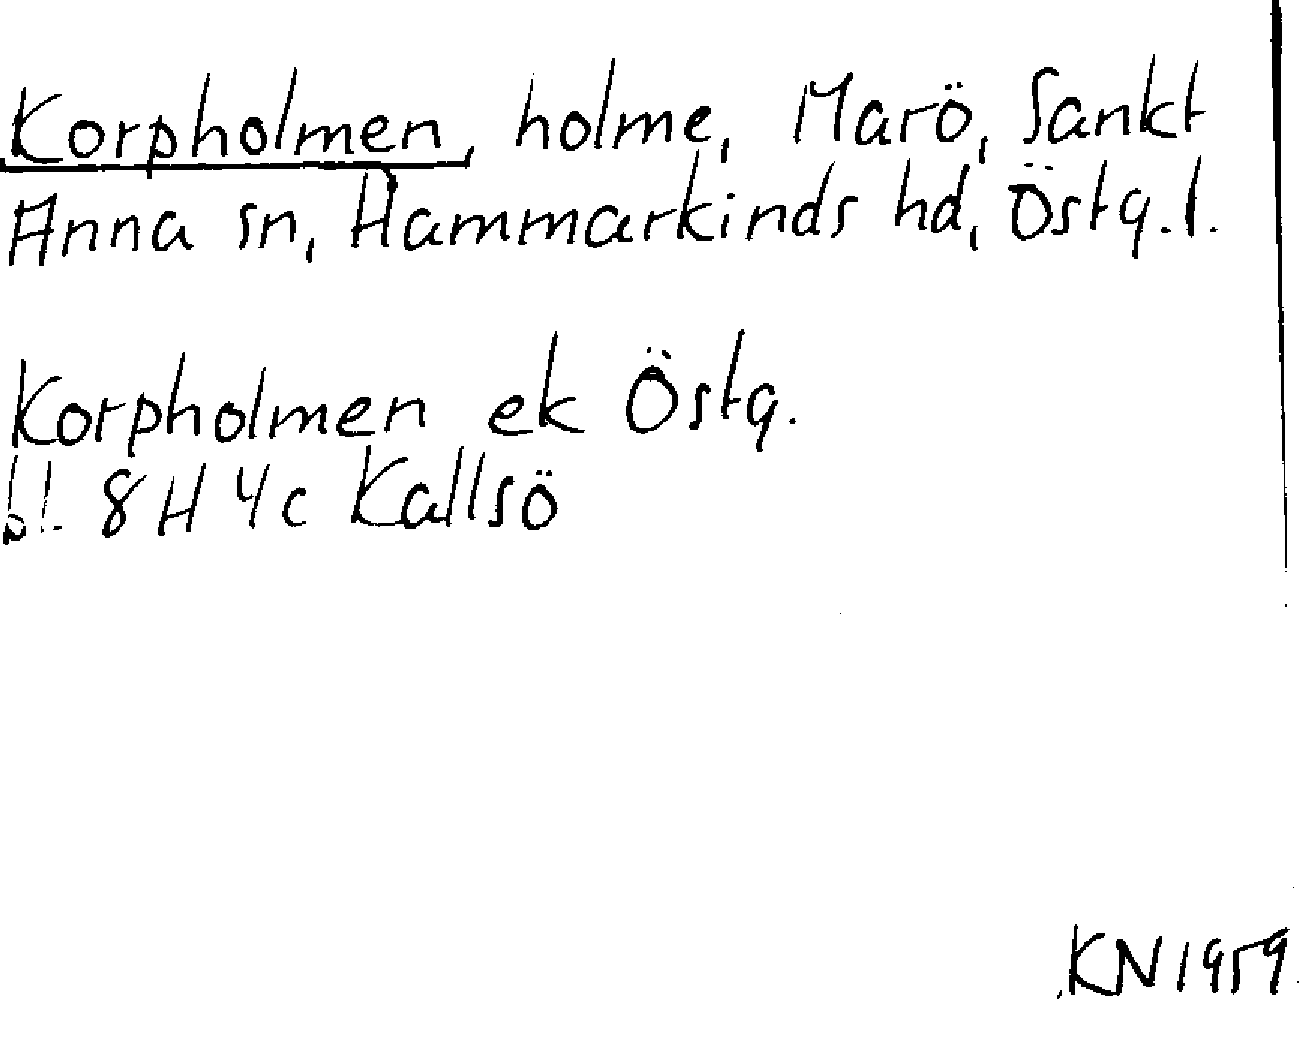 Korpholmen, holme, Marö, Sankt
Anna sn, Hammarkinds hd, Östg.l.
Korpholmen ek Östg.
bl. 8H 4c Kallsö
KN 1959